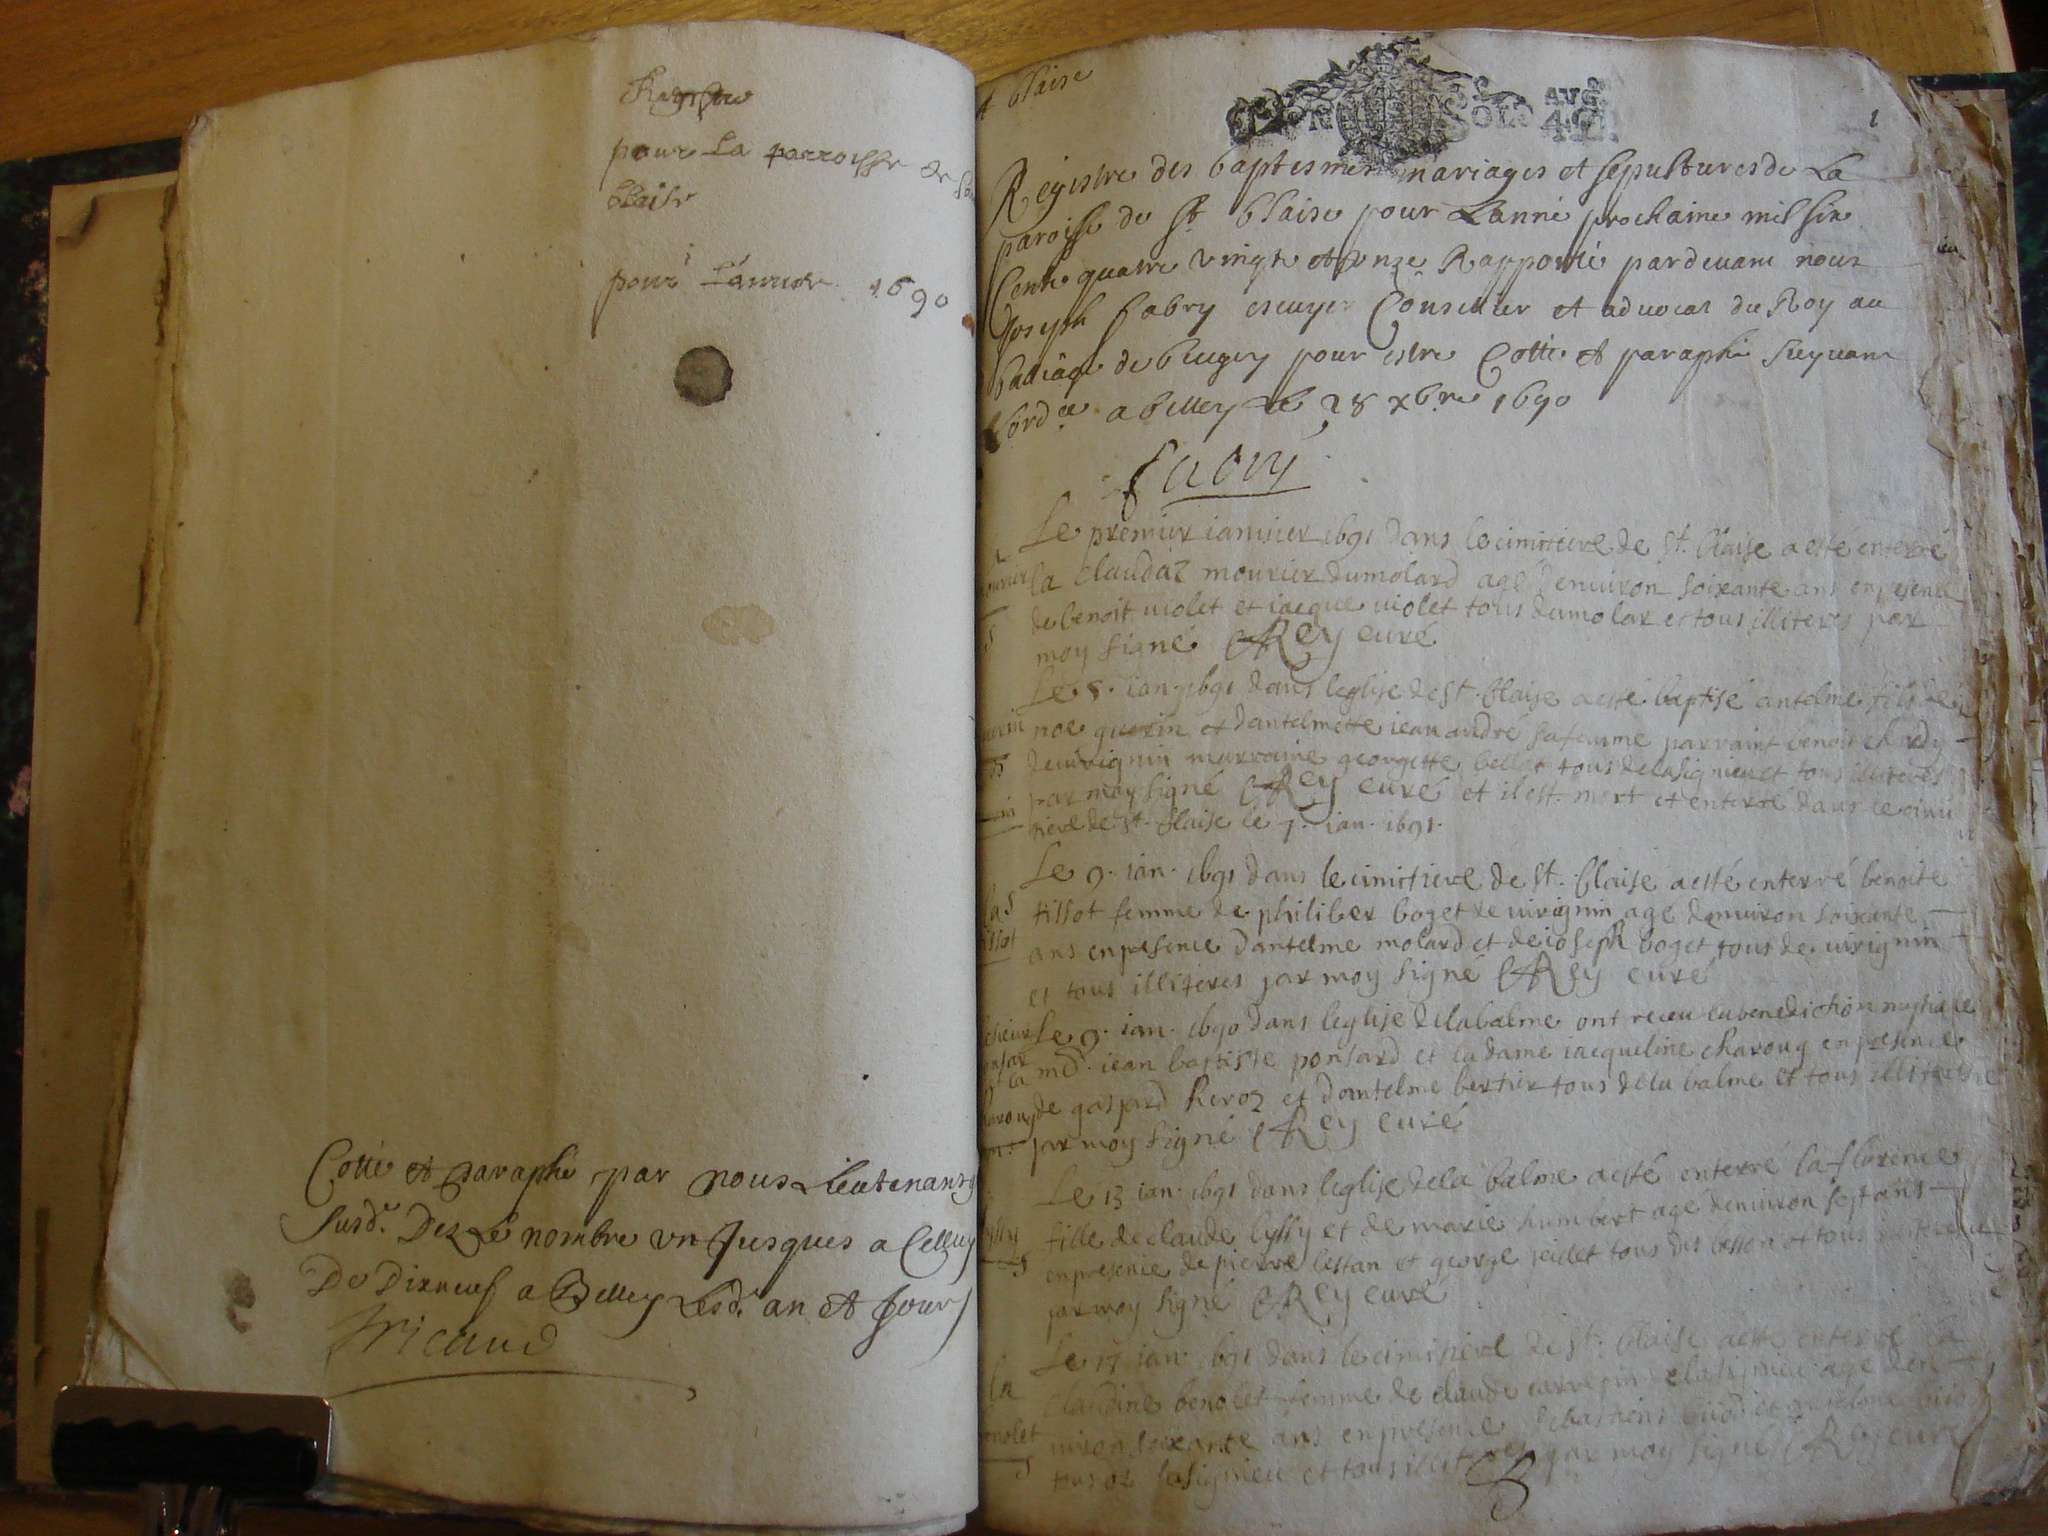 Registre
pour La parroisse de
blaise
pour L'annee 1690
Cotté et paraphé par nous Lieutenant
Susd. Dez Le nombre un Jusques a Celluy
De Dixneuf a Belley Lesd. an et Jour
St blaise
SOLS
1
Registre des baptesmes mariages et sepultures de La
paroisse de St. blaise pour Lanné prochaine mil six
Cents quatre vingt et unze Rapporté pardevant nous
Joseph fabry escuyer Conseiller et advocat du Roy au
bailiage de beugey pour estre Cotté et paraphé suyvant
Lord.ce a belley Le 28 xbre 1690
fabry
Le premier ianvier 1691 dans le cimitiere de St. blaise a esté enterré
la claudaz mourier dumolard agé denviron soixante ans en presence
de benoit violet et iacque violet tous dumolar et tous illiteres par
moy signé Rey curé
Le 5. ian. 1691 dans leglise de St. blaise a esté baptisé antelme fils de
noe guerin et dantelmette iean andré sa femme parraint benoit
de virignin marraine georgette bellet tous de lasignieu et tous illiteres
par moy signé Rey curé et il est mort et enterré dans le cimi
tiere de St. blaise le 7. ian. 1691.
Le 9. ian. 1691 dans le cimitiere de St. blaise a esté enterré benoite
tissot femme de philiber boget de virignin age denviron soixante
ans en presence dantelme molard et de ioseph boget tous de virignin
et tous illiteres par moy signé Rey curé
Le 9. ian. 1690 dans leglise de la balme ont receu la benediction nuptiale
md. iean baptiste ponsard et la dame iacqueline charouy en presence
de gaspard heroz et dantelme bertier tous de la balme et tous illiteres
par moy signé Rey curé
Le 13 ian. 1691 dans leglise de la balme a esté enterré la florence
fille de claude lyssy et de marie humbert age denviron sept ans
en presence de pierre lestan et george tous et tous
par moy signé Rey curé
Le 17 ian. 1691 dans le cimitiere de St. blaise a esté enterré la
claudine benolet femme de claude age den
viron soixante ans en presence
tous de lasignieu et tous illiteres par moy signé Rey curé